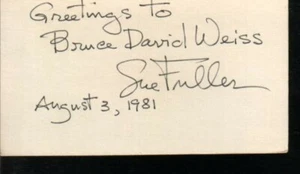 Greetings to
Bruce David Weiss
Sue Fuller
August 3, 1981